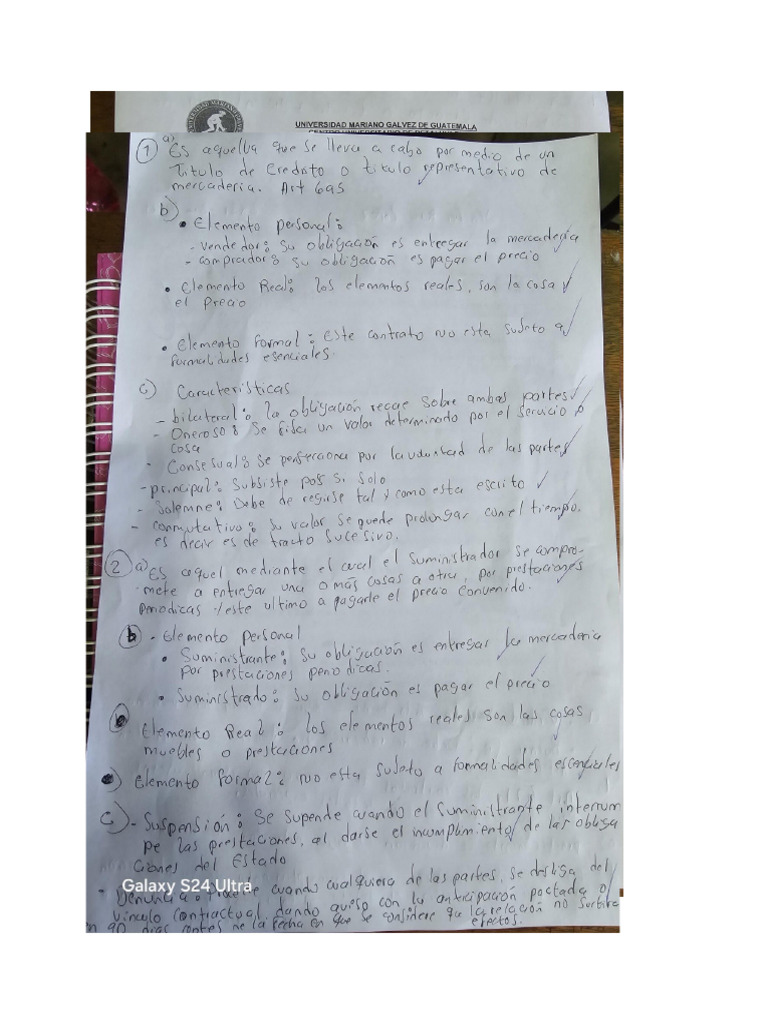 UNIVERSIDAD MARIANO GALVEZ DE GUATEMALA
1) a) Es aquella que se lleva a cabo por medio de un
Titulo de Credito o titulo representativo de
mercaderia. Art 695
b)
• Elemento personal:
- vendedor: su obligación es entregar la mercaderia
- comprador: su obligación es pagar el precio
• Elemento Real: los elementos reales, son la cosa y
el precio
• Elemento Formal: Este contrato no esta sujeto a
formalidades esenciales.
c) Caracteristicas
- bilateral: la obligación recae sobre ambas partes
- Oneroso: se fija un valor determinado por el servicio o
cosa
- Consesual: se perfecciona por la voluntad de las partes
- principal: Subsiste por si solo
- Solemne: Debe de regirse tal y como esta escrito
- conmutativo: su valor se puede prolongar con el tiempo.
es decir es de tracto sucesivo.
2) a) Es aquel mediante el cual el suministrador se compro-
mete a entregar una o más cosas a otra, por prestaciones
periodicas y este ultimo a pagarle el precio convenido.
b) - Elemento personal
• Suministrante: Su obligación es entregar la mercaderia
por prestaciones periodicas.
• Suministrado: su obligación es pagar el precio
Elemento Real: los elementos reales son las cosas
muebles o prestaciones
Elemento formal: no esta sujeto a formalidades esenciales
c) - Suspensión: Se supende cuando el suministrante interrum
pe las prestaciones, al darse el incumplimiento de las obliga
ciones del Estado
• Denuncia: Procede cuando cualquiera de las partes, se desliga del
vinculo contractual, dando aviso con la anticipación pactada o
90 dias antes de la fecha en que se considere q la relación no surtira
efectos.
Galaxy S24 Ultra